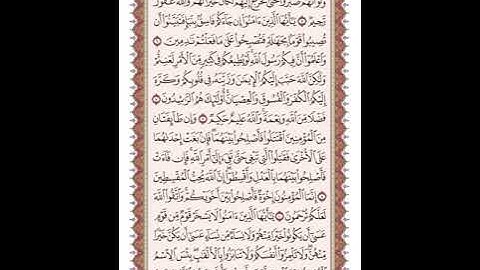 وَلَوْ أَنَّهُمْ صَبَرُوا۟ حَتَّىٰ تَخْرُجَ إِلَيْهِمْ لَكَانَ خَيْرًا لَّهُمْ وَٱللَّهُ غَفُورٌ
رَّحِيمٌ ۝ يَـٰٓأَيُّهَا ٱلَّذِينَ ءَامَنُوٓا۟ إِن جَآءَكُمْ فَاسِقٌۢ بِنَبَإٍ فَتَبَيَّنُوٓا۟ أَن
تُصِيبُوا۟ قَوْمًۢا بِجَهَـٰلَةٍ فَتُصْبِحُوا۟ عَلَىٰ مَا فَعَلْتُمْ نَـٰدِمِينَ ۝
وَٱعْلَمُوٓا۟ أَنَّ فِيكُمْ رَسُولَ ٱللَّهِ لَوْ يُطِيعُكُمْ فِى كَثِيرٍ مِّنَ ٱلْأَمْرِ لَعَنِتُّمْ
وَلَـٰكِنَّ ٱللَّهَ حَبَّبَ إِلَيْكُمُ ٱلْإِيمَـٰنَ وَزَيَّنَهُۥ فِى قُلُوبِكُمْ وَكَرَّهَ
إِلَيْكُمُ ٱلْكُفْرَ وَٱلْفُسُوقَ وَٱلْعِصْيَانَ أُو۟لَـٰٓئِكَ هُمُ ٱلرَّٰشِدُونَ ۝
فَضْلًا مِّنَ ٱللَّهِ وَنِعْمَةً وَٱللَّهُ عَلِيمٌ حَكِيمٌ ۝ وَإِن طَآئِفَتَانِ
مِنَ ٱلْمُؤْمِنِينَ ٱقْتَتَلُوا۟ فَأَصْلِحُوا۟ بَيْنَهُمَا فَإِنۢ بَغَتْ إِحْدَىٰهُمَا
عَلَى ٱلْأُخْرَىٰ فَقَـٰتِلُوا۟ ٱلَّتِى تَبْغِى حَتَّىٰ تَفِىٓءَ إِلَىٰٓ أَمْرِ ٱللَّهِ فَإِن فَآءَتْ
فَأَصْلِحُوا۟ بَيْنَهُمَا بِٱلْعَدْلِ وَأَقْسِطُوٓا۟ إِنَّ ٱللَّهَ يُحِبُّ ٱلْمُقْسِطِينَ
۝ إِنَّمَا ٱلْمُؤْمِنُونَ إِخْوَةٌ فَأَصْلِحُوا۟ بَيْنَ أَخَوَيْكُمْ وَٱتَّقُوا۟ ٱللَّهَ
لَعَلَّكُمْ تُرْحَمُونَ ۝ يَـٰٓأَيُّهَا ٱلَّذِينَ ءَامَنُوا۟ لَا يَسْخَرْ قَوْمٌ مِّن قَوْمٍ
عَسَىٰٓ أَن يَكُونُوا۟ خَيْرًا مِّنْهُمْ وَلَا نِسَآءٌ مِّن نِّسَآءٍ عَسَىٰٓ أَن يَكُنَّ خَيْرًا
مِّنْهُنَّ وَلَا تَلْمِزُوٓا۟ أَنفُسَكُمْ وَلَا تَنَابَزُوا۟ بِٱلْأَلْقَـٰبِ بِئْسَ ٱلِٱسْمُ